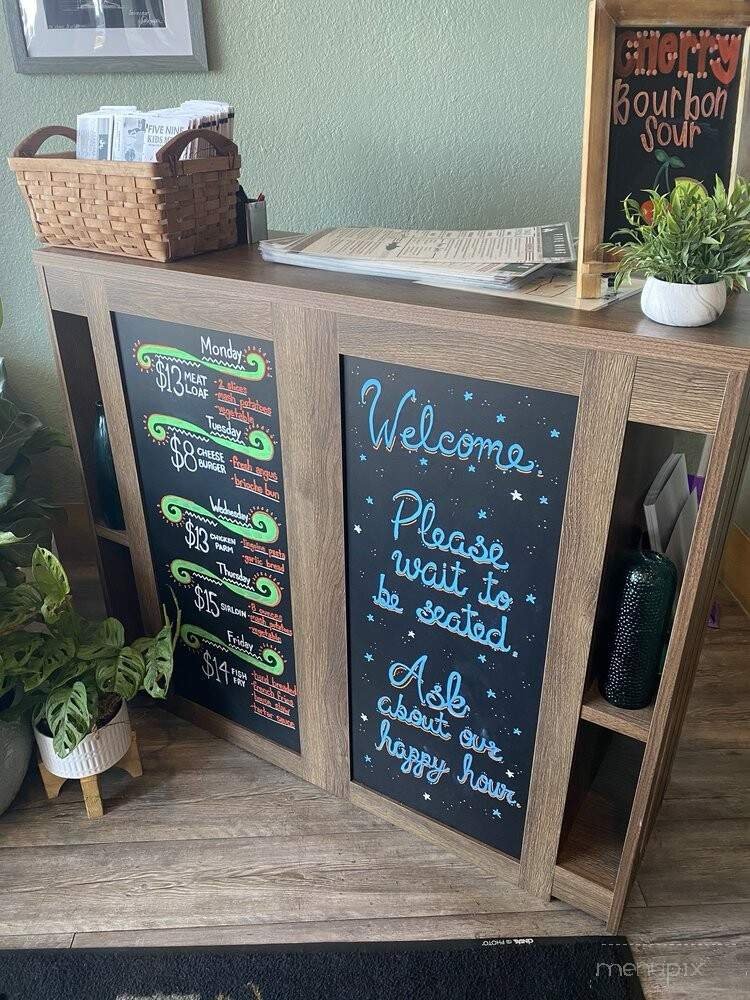 FIVE NINE
KIDS ME
Cherry
Bourbon
Sour
Monday
$13 MEAT
LOAF
- 2 slices
- mash potatoes
- vegetable
Tuesday
$8 CHEESE
BURGER
- fresh angus
- brioche bun
Wednesday
$13 CHICKEN
PARM
- linguine pasta
- garlic bread
Thursday
$15 SIRLOIN
- 8 ounces
- mash potatoes
- vegetable
Friday
$14 FISH
FRY
- hand breaded
- french fries
- tarter sauce
Welcome.
Please
wait to
be seated.
Ask
about our
happy hour.
menupix